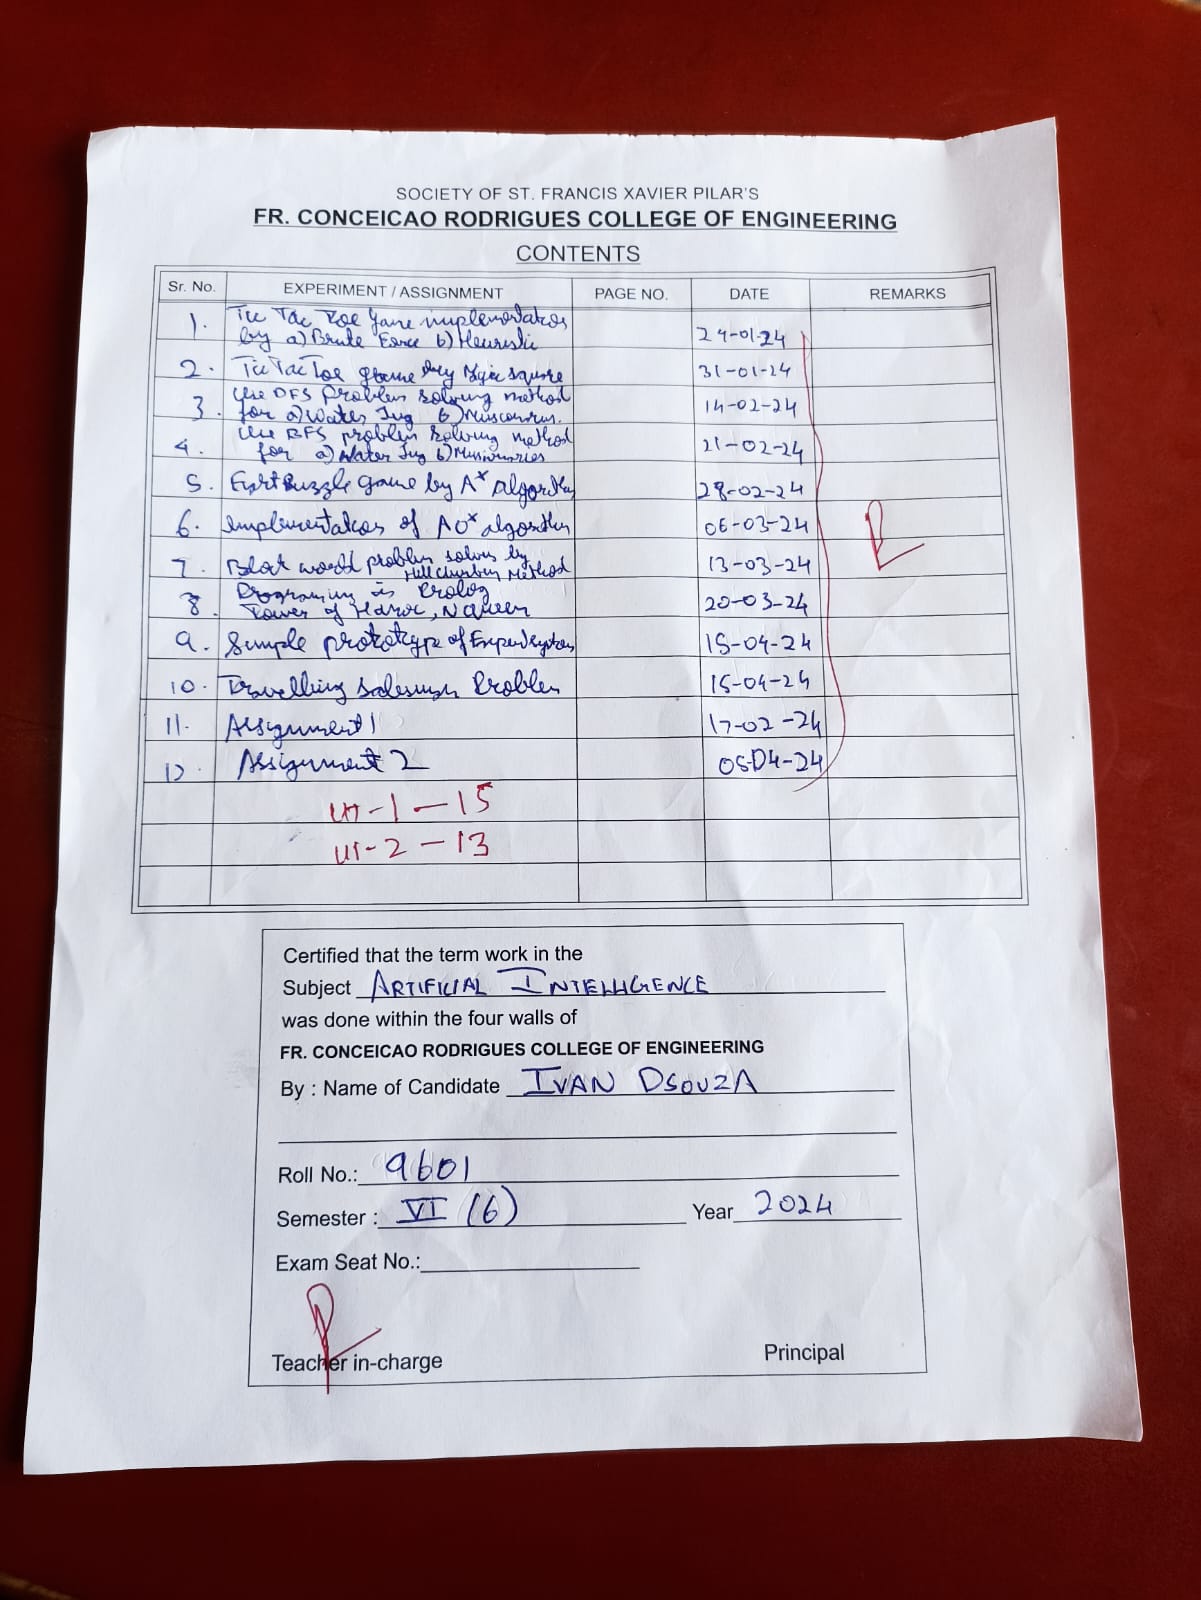 SOCIETY OF ST. FRANCIS XAVIER PILAR'S
FR. CONCEICAO RODRIGUES COLLEGE OF ENGINEERING
CONTENTS
Sr. No. EXPERIMENT / ASSIGNMENT PAGE NO. DATE REMARKS
1. Tic Tac Toe Game implementation 24-01-24
by a) Brute Force b) Heuristic
2. Tic Tac Toe game by Magic square 31-01-24
Use DFS problem solving method
3. for a) Water Jug b) 14-02-24
Use BFS problem solving method
4. for a) Water Jug b) Missionaries 21-02-24
5. Puzzle game by A* algorithm 28-02-24
6. Implementation of AO* algorithm 06-03-24
7. Block world problem solve by 13-03-24
Hill climbing Method
Programing in Prolog
8. Tower of , N queen 20-03-24
9. Simple prototype of 15-04-24
10. Travelling Salesman Problem 15-04-24
11. Assignment 1 17-02-24
12. Assignment 2 05-04-24
UT-1-15
UT-2-13
Certified that the term work in the
Subject ARTIFICIAL INTELLIGENCE
was done within the four walls of
FR. CONCEICAO RODRIGUES COLLEGE OF ENGINEERING
By : Name of Candidate IVAN DSOUZA
Roll No.: 9601
Semester : VI (6) Year 2024
Exam Seat No.:
Teacher in-charge Principal